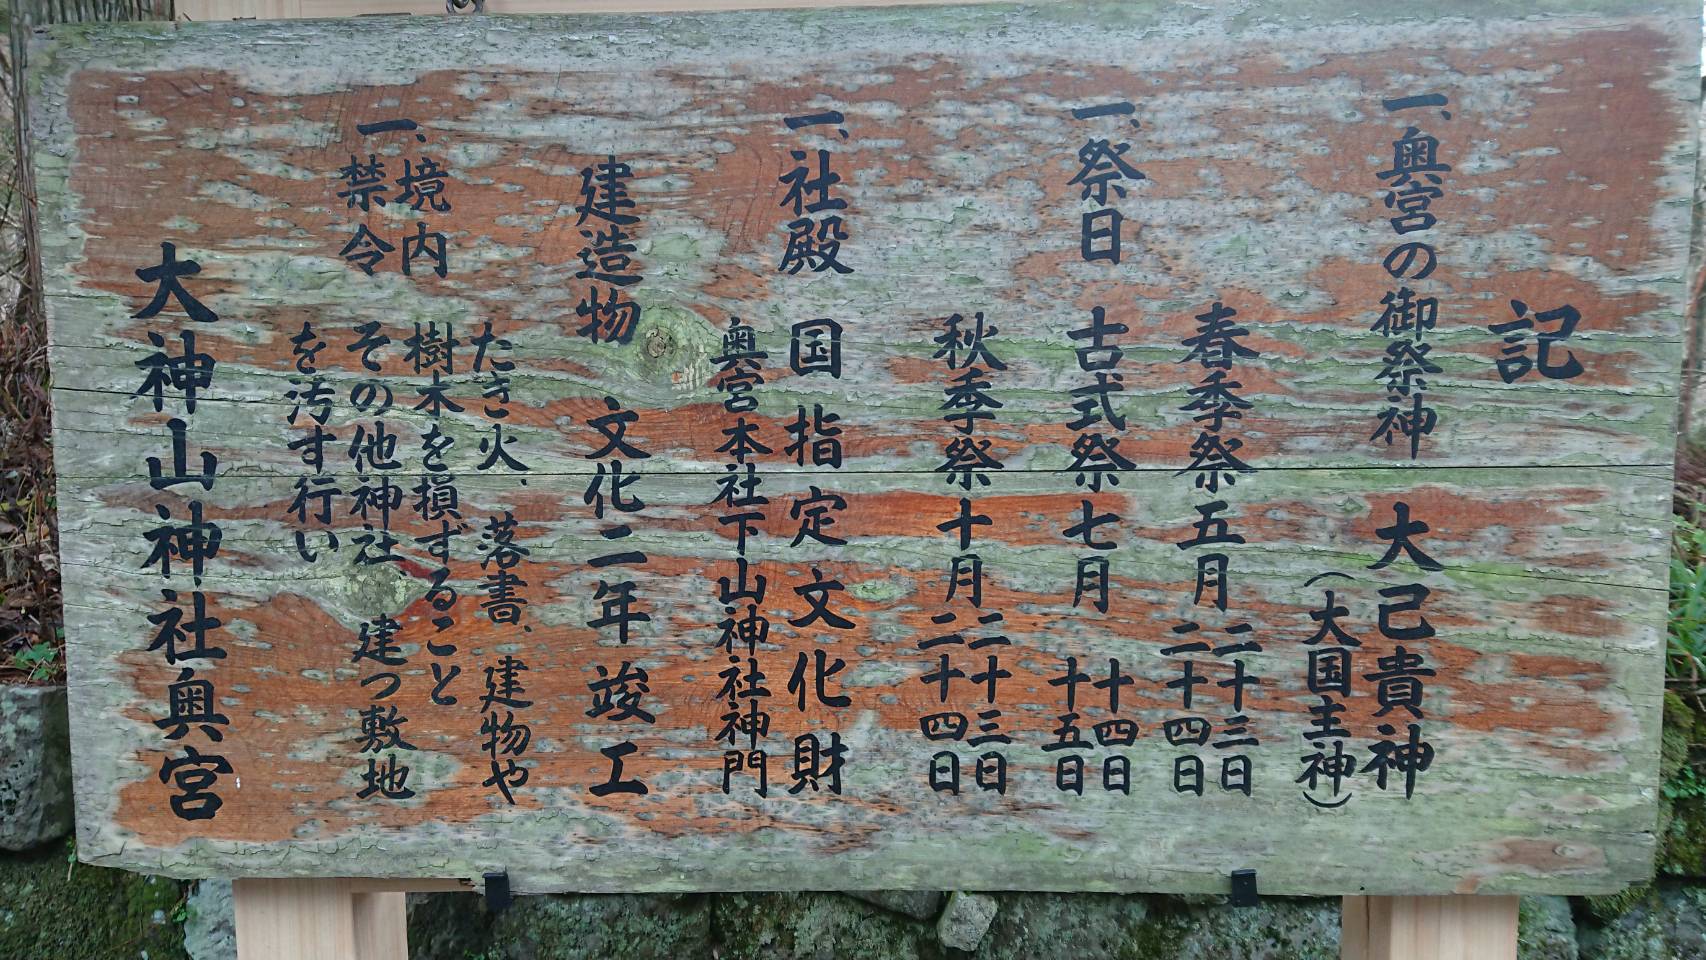 記
一、奥宮の御祭神　大己貴神
（大国主神）
春季祭　五月　二十三日
二十四日
一、祭日　古式祭　七月　十四日
十五日
秋季祭　十月　二十三日
二十四日
一、社殿　国指定文化財
奥宮本社下山神社神門
建造物　文化二年竣工
たき火、落書、建物や
一、境内
樹木を損ずること
禁令
その他神社　建つ敷地
を汚す行い
大神山神社奥宮